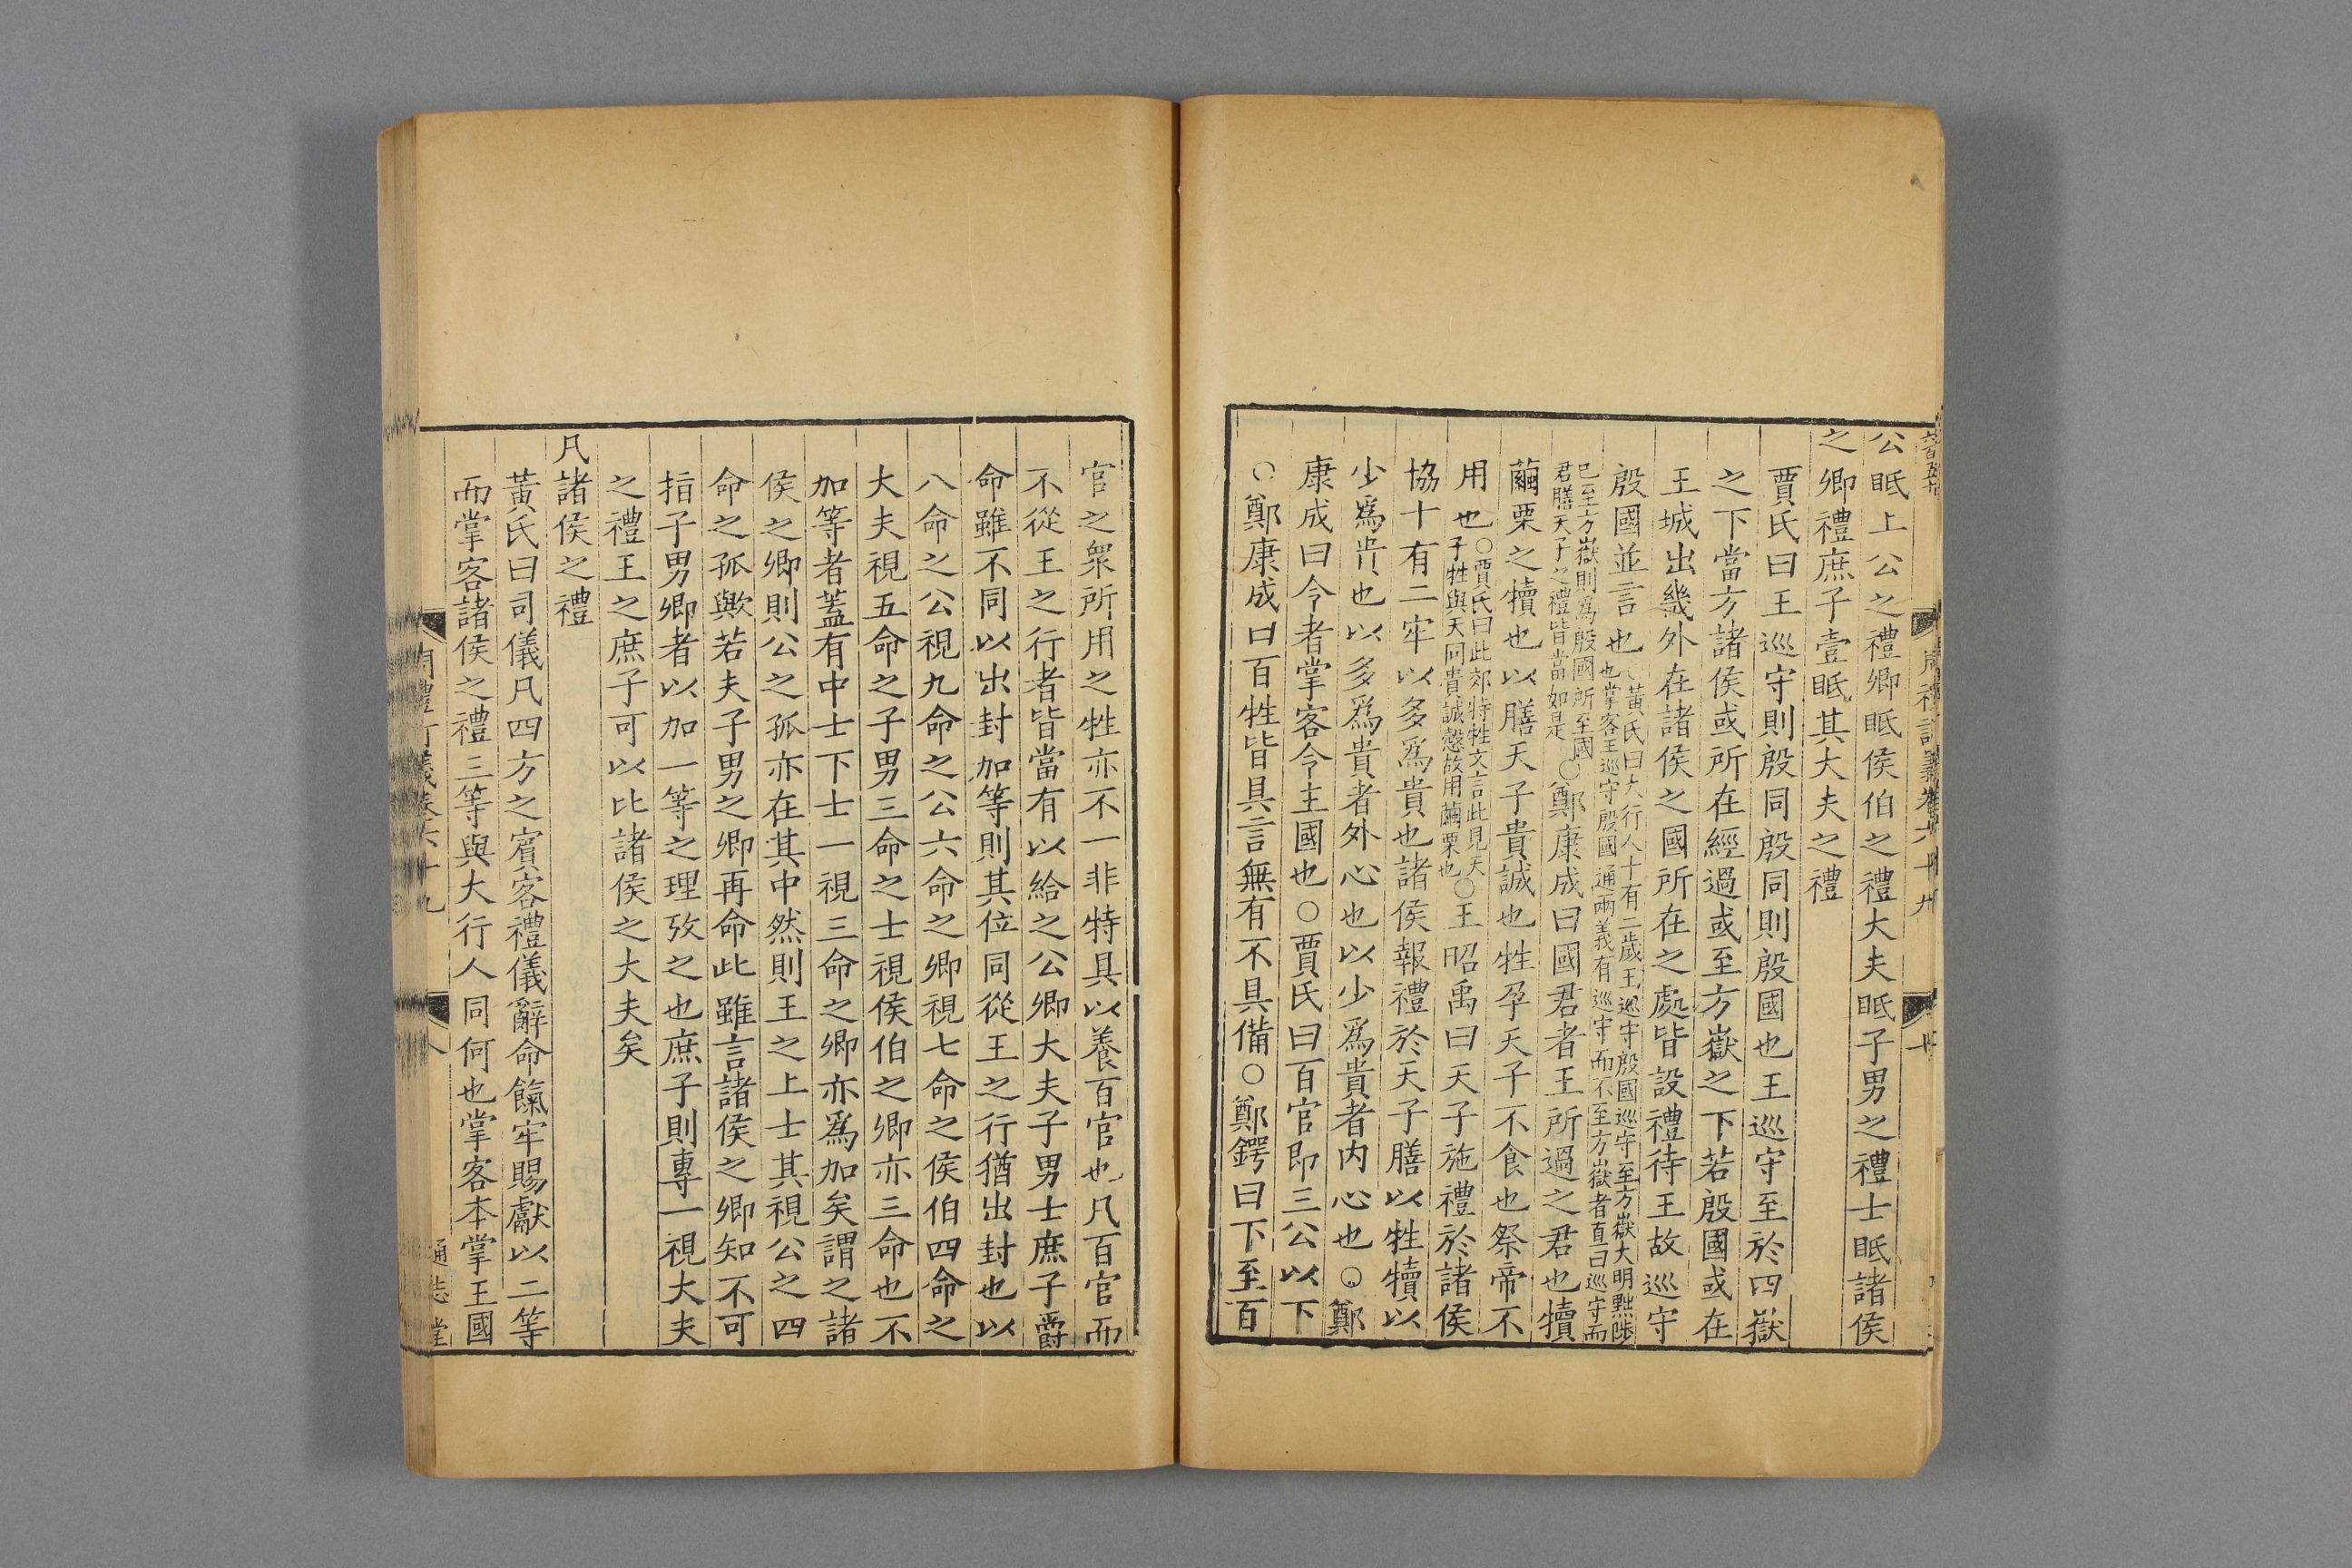 公眡上公之禮卿眡侯伯之禮大夫眡子男之禮士眡諸侯
之卿禮庶子壹眡其大夫之禮
賈氏曰王巡守則殷同殷同則殷國也王巡守至於四嶽
之下當方諸侯或所在經過或至方嶽之下若殷國或在
王城出畿外在諸侯之國所在之處皆設禮待王故巡守
殷國並言也
○黃氏曰大行人十有二歲王巡守殷國巡守至方嶽大明黜陟
也掌客王巡守殷國通兩義有巡守而不至方嶽者直曰巡守而
已至方嶽則爲殷國所至國
君膳天子之禮皆當如是
○鄭康成曰國君者王所過之君也犢
繭栗之犢也以膳天子貴誠也牲孕天子不食也祭帝不
用也
○賈氏曰此郊特牲文言此見天
子牲與天同貴誠愨故用繭栗也
○王昭禹曰天子施禮於諸侯
協十有二牢以多爲貴也諸侯報禮於天子膳以牲犢以
少爲貴也以多爲貴者外心也以少爲貴者内心也○鄭
康成曰今者掌客令主國也○賈氏曰百官即三公以下
○鄭康成曰百牲皆具言無有不具備○鄭鍔曰下至百
官之衆所用之牲亦不一非特具以養百官也凡百官而
不從王之行者皆當有以給之公卿大夫子男士庶子爵
命雖不同以出封加等則其位同從王之行猶出封也以
八命之公視九命之公六命之卿視七命之侯伯四命之
大夫視五命之子男三命之士視侯伯之卿亦三命也不
加等者蓋有中士下士一視三命之卿亦爲加矣謂之諸
侯之卿則公之孤亦在其中然則王之上士其視公之四
命之孤歟若夫子男之卿再命此雖言諸侯之卿知不可
指子男卿者以加一等之理攷之也庶子則專一視大夫
之禮王之庶子可以比諸侯之大夫矣
凡諸侯之禮
黃氏曰司儀凡四方之賓客禮儀辭命餼牢賜獻以二等
而掌客諸侯之禮三等與大行人同何也掌客本掌王國
八
通志堂